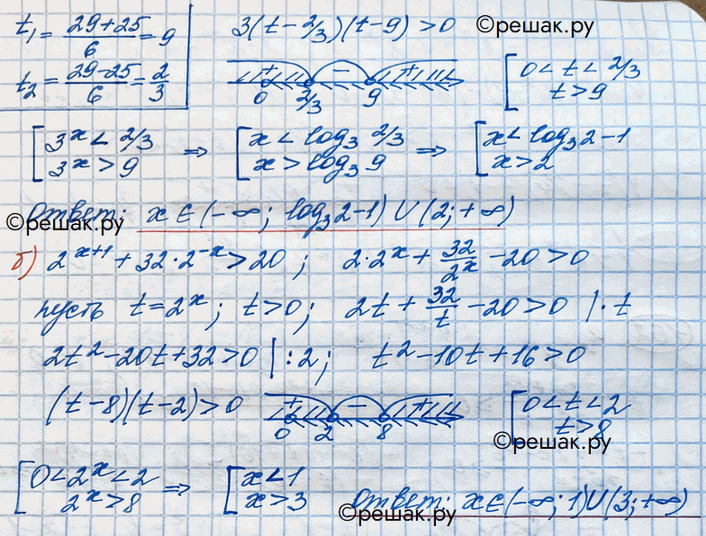 t₁ = (29+25)/6 = 9    3(t − 2/3)(t−9) > 0    ©решак.ру
t₂ = (29−25)/6 = 2/3    + − +    0 2/3 9    [ 0 < t < 2/3
t > 9
[ 3ˣ < 2/3    ⇒    [ x < log₃ 2/3    ⇒    [ x < log₃2 − 1
3ˣ > 9    x > log₃ 9    x > 2
©решак.ру
Ответ: x ∈ (−∞; log₃2−1) ∪ (2; +∞)
б) 2ˣ⁺¹ + 32·2⁻ˣ > 20 ;    2·2ˣ + 32/2ˣ − 20 > 0
пусть t = 2ˣ; t > 0;    2t + 32/t − 20 > 0 |·t
2t² − 20t + 32 > 0 |:2;    t² − 10t + 16 > 0
(t−8)(t−2) > 0    + − +    0 2 8    [ 0 < t < 2
t > 8
©решак.ру
[ 0 < 2ˣ < 2    ⇒    [ x < 1
2ˣ > 8    x > 3    Ответ: x ∈ (−∞; 1) ∪ (3; +∞)
©решак.ру